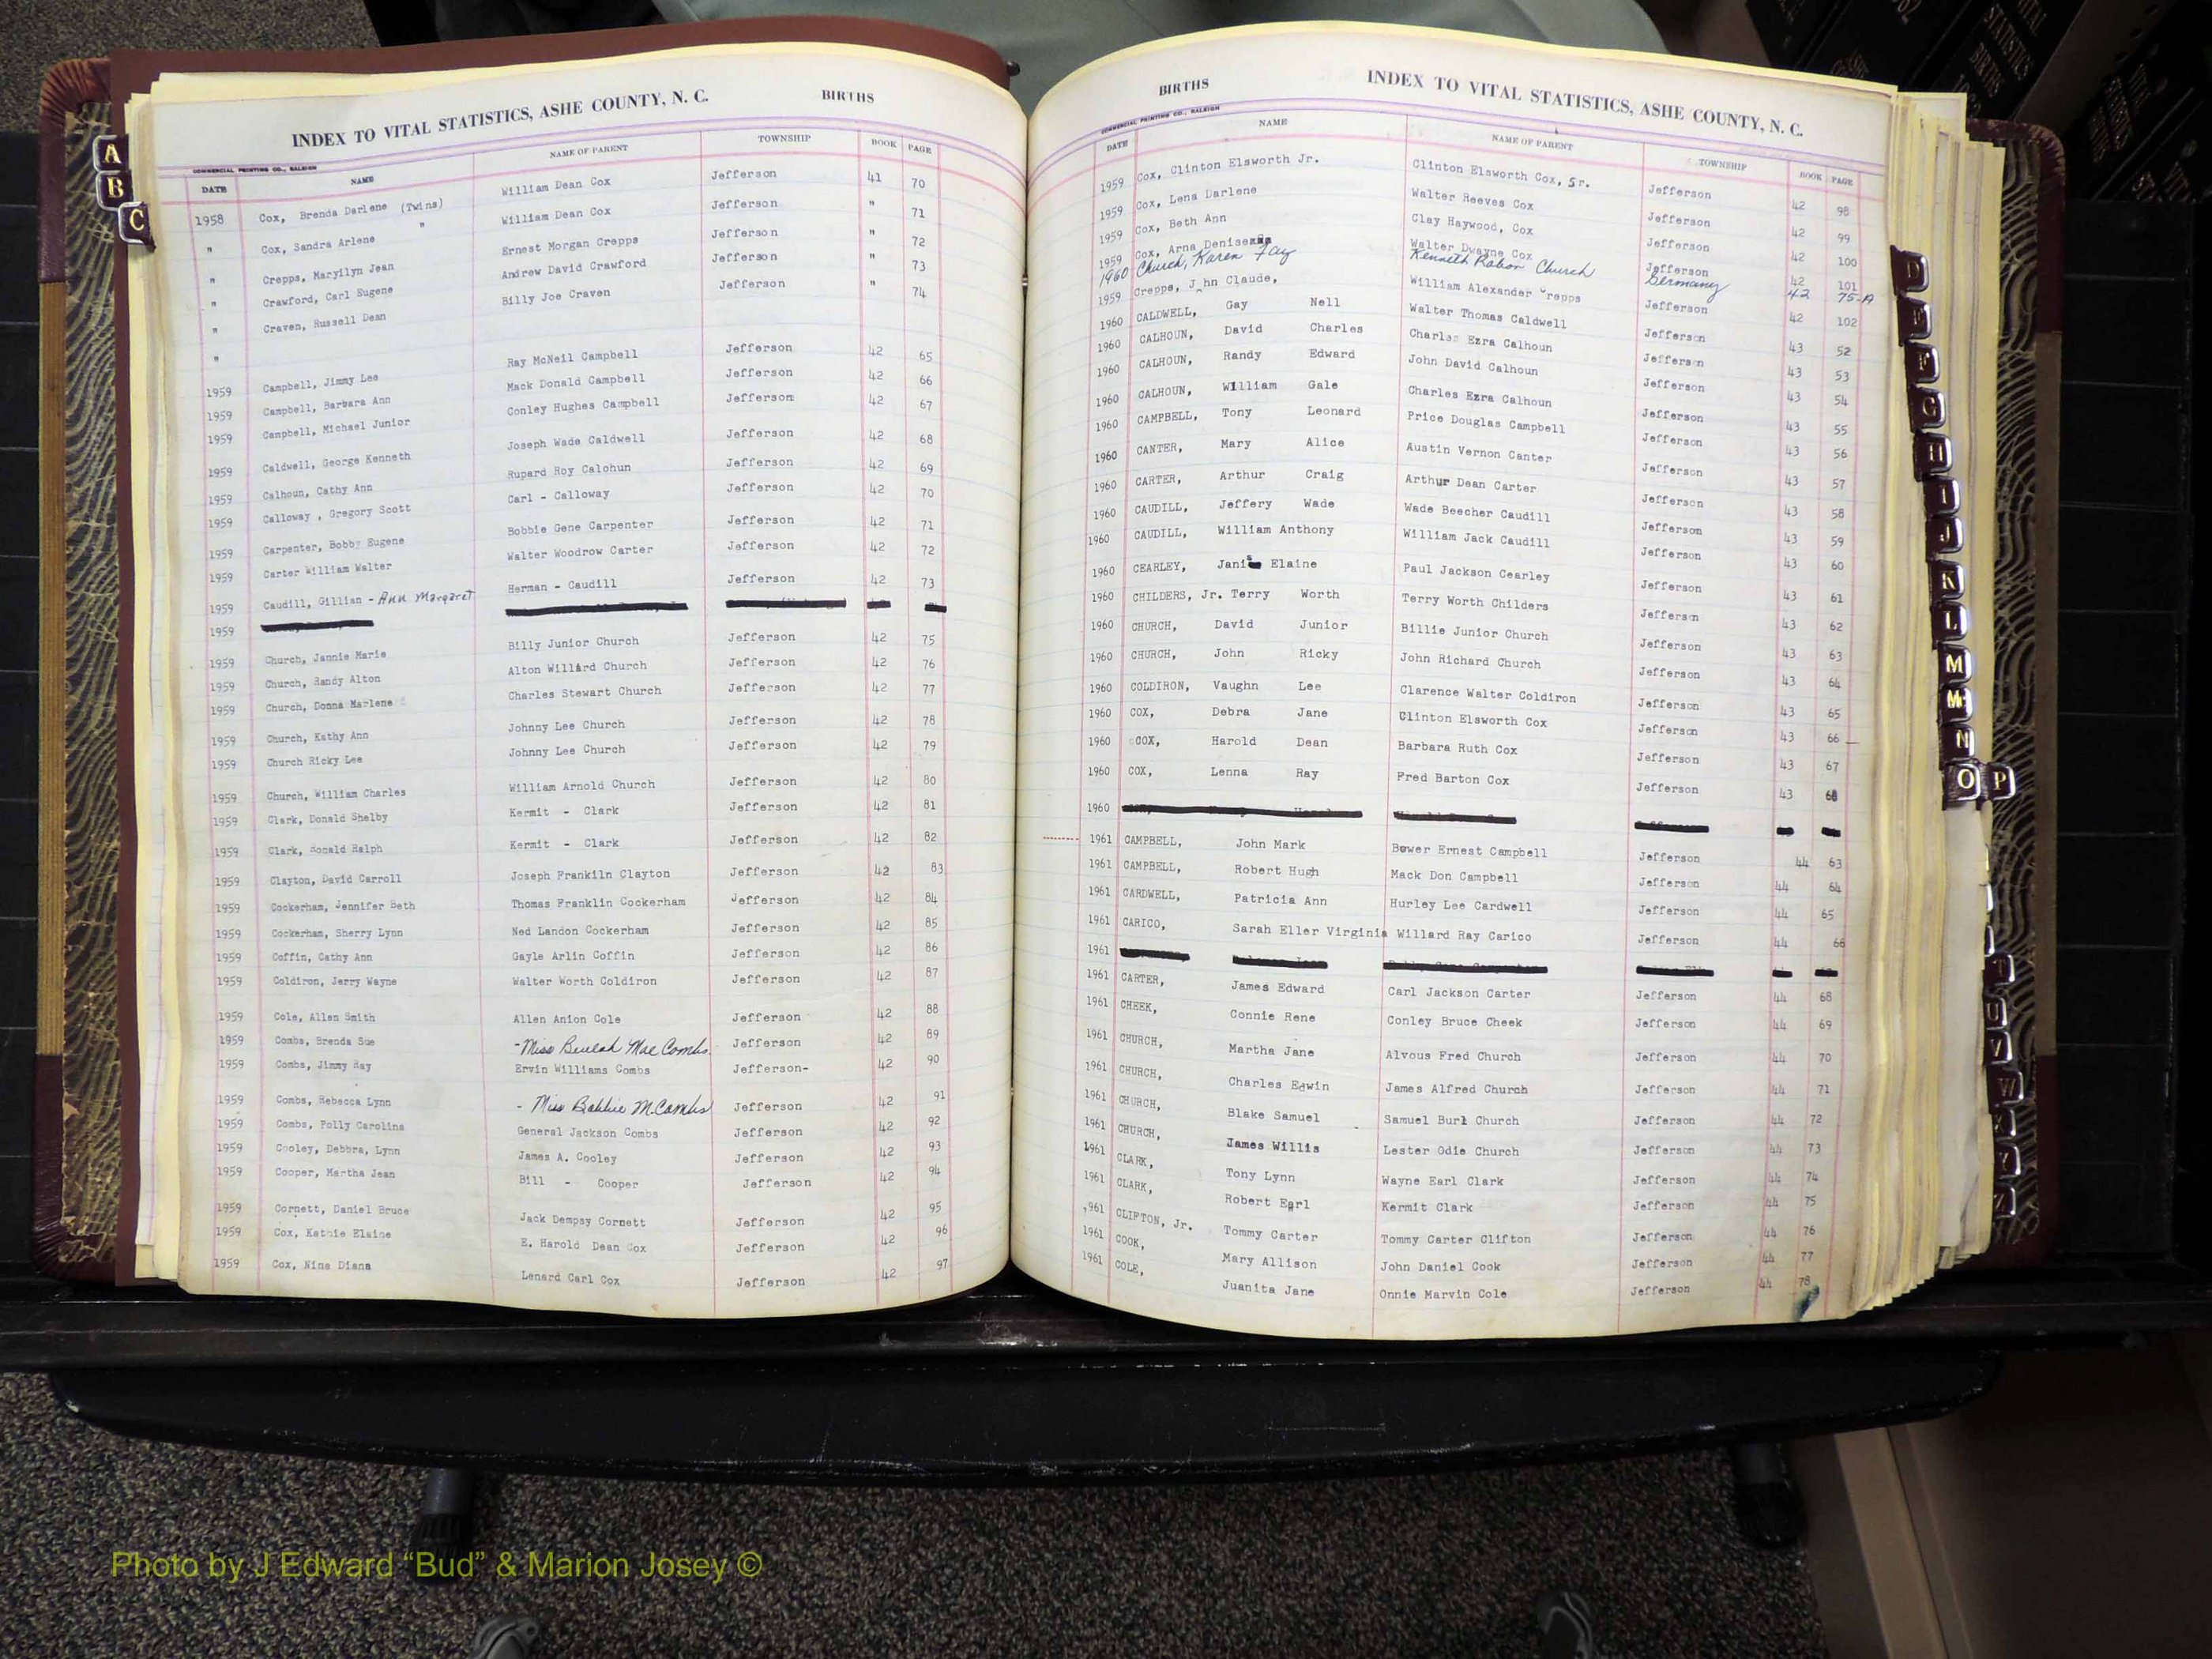 INDEX TO VITAL STATISTICS, ASHE COUNTY, N. C. BIRTHS
COMMERCIAL PRINTING CO., RALEIGH
DATE NAME NAME OF PARENT TOWNSHIP BOOK PAGE
1958 Cox, Brenda Darlene (Twins) William Dean Cox Jefferson 41 70
" Cox, Sandra Arlene " William Dean Cox Jefferson " 71
" Crepps, Maryilyn Jean Ernest Morgan Crepps Jefferson " 72
" Crawford, Carl Eugene Andrew David Crawford Jefferson " 73
" Craven, Russell Dean Billy Joe Craven Jefferson " 74
"
1959 Campbell, Jimmy Lee Ray McNeil Campbell Jefferson 42 65
1959 Campbell, Barbara Ann Mack Donald Campbell Jefferson 42 66
1959 Campbell, Michael Junior Conley Hughes Campbell Jefferson 42 67
1959 Caldwell, George Kenneth Joseph Wade Caldwell Jefferson 42 68
1959 Calhoun, Cathy Ann Rupard Roy Calohun Jefferson 42 69
1959 Calloway , Gregory Scott Carl - Calloway Jefferson 42 70
1959 Carpenter, Bobby Eugene Bobbie Gene Carpenter Jefferson 42 71
1959 Carter William Walter Walter Woodrow Carter Jefferson 42 72
1959 Caudill, Gillian - Ann Margaret Herman - Caudill Jefferson 42 73
1959
1959 Church, Jannie Marie Billy Junior Church Jefferson 42 75
1959 Church, Randy Alton Alton Willard Church Jefferson 42 76
1959 Church, Donna Marlene Charles Stewart Church Jefferson 42 77
1959 Church, Kathy Ann Johnny Lee Church Jefferson 42 78
1959 Church Ricky Lee Johnny Lee Church Jefferson 42 79
1959 Church, William Charles William Arnold Church Jefferson 42 80
1959 Clark, Donald Shelby Kermit - Clark Jefferson 42 81
1959 Clark, Ronald Ralph Kermit - Clark Jefferson 42 82
1959 Clayton, David Carroll Joseph Frankiln Clayton Jefferson 42 83
1959 Cockerham, Jennifer Beth Thomas Franklin Cockerham Jefferson 42 84
1959 Cockerham, Sherry Lynn Ned Landon Cockerham Jefferson 42 85
1959 Coffin, Cathy Ann Gayle Arlin Coffin Jefferson 42 86
1959 Coldiron, Jerry Wayne Walter Worth Coldiron Jefferson 42 87
1959 Cole, Allen Smith Allen Anion Cole Jefferson 42 88
1959 Combs, Brenda Sue - Miss Beulah Mae Combs. Jefferson 42 89
1959 Combs, Jimmy Ray Ervin Williams Combs Jefferson- 42 90
1959 Combs, Rebecca Lynn - Miss Bobbie M. Combs Jefferson 42 91
1959 Combs, Polly Carolina General Jackson Combs Jefferson 42 92
1959 Cooley, Debbra, Lynn James A. Cooley Jefferson 42 93
1959 Cooper, Martha Jean Bill - Cooper Jefferson 42 94
1959 Cornett, Daniel Bruce Jack Dempsy Cornett Jefferson 42 95
1959 Cox, Kathie Elaine E. Harold Dean Cox Jefferson 42 96
1959 Cox, Nina Diana Lenard Carl Cox Jefferson 42 97
BIRTHS INDEX TO VITAL STATISTICS, ASHE COUNTY, N. C.
COMMERCIAL PRINTING CO., RALEIGH
DATE NAME NAME OF PARENT TOWNSHIP BOOK PAGE
1959 Cox, Clinton Elsworth Jr. Clinton Elsworth Cox, Sr. Jefferson 42 98
1959 Cox, Lena Darlene Walter Reeves Cox Jefferson 42 99
1959 Cox, Beth Ann Clay Haywood, Cox Jefferson 42 100
1959 Cox, Arna Denise Walter Dwayne Cox Jefferson 42 101
1960 Church, Karen Fay Kenneth Church Germany 42 75-A
1959 Crepps, John Claude, William Alexander Crepps Jefferson 42 102
1960 CALDWELL, Gay Nell Walter Thomas Caldwell Jefferson 43 52
1960 CALHOUN, David Charles Charles Ezra Calhoun Jefferson 43 53
1960 CALHOUN, Randy Edward John David Calhoun Jefferson 43 54
1960 CALHOUN, William Gale Charles Ezra Calhoun Jefferson 43 55
1960 CAMPBELL, Tony Leonard Price Douglas Campbell Jefferson 43 56
1960 CANTER, Mary Alice Austin Vernon Canter Jefferson 43 57
1960 CARTER, Arthur Craig Arthur Dean Carter Jefferson 43 58
1960 CAUDILL, Jeffery Wade Wade Beecher Caudill Jefferson 43 59
1960 CAUDILL, William Anthony William Jack Caudill Jefferson 43 60
1960 CEARLEY, Janis Elaine Paul Jackson Cearley Jefferson 43 61
1960 CHILDERS, Jr. Terry Worth Terry Worth Childers Jefferson 43 62
1960 CHURCH, David Junior Billie Junior Church Jefferson 43 63
1960 CHURCH, John Ricky John Richard Church Jefferson 43 64
1960 COLDIRON, Vaughn Lee Clarence Walter Coldiron Jefferson 43 65
1960 COX, Debra Jane Clinton Elsworth Cox Jefferson 43 66
1960 COX, Harold Dean Barbara Ruth Cox Jefferson 43 67
1960 COX, Lenna Ray Fred Barton Cox Jefferson 43 68
1960
1961 CAMPBELL, John Mark Bower Ernest Campbell Jefferson 44 63
1961 CAMPBELL, Robert Hugh Mack Don Campbell Jefferson 44 64
1961 CARDWELL, Patricia Ann Hurley Lee Cardwell Jefferson 44 65
1961 CARICO, Sarah Eller Virginia Willard Ray Carico Jefferson 44 66
1961
1961 CARTER, James Edward Carl Jackson Carter Jefferson 44 68
1961 CHEEK, Connie Rene Conley Bruce Cheek Jefferson 44 69
1961 CHURCH, Martha Jane Alvous Fred Church Jefferson 44 70
1961 CHURCH, Charles Edwin James Alfred Church Jefferson 44 71
1961 CHURCH, Blake Samuel Samuel Burl Church Jefferson 44 72
1961 CHURCH, James Willis Lester Odie Church Jefferson 44 73
1961 CLARK, Tony Lynn Wayne Earl Clark Jefferson 44 74
1961 CLARK, Robert Earl Kermit Clark Jefferson 44 75
1961 CLIFTON, Jr. Tommy Carter Tommy Carter Clifton Jefferson 44 76
1961 COOK, Mary Allison John Daniel Cook Jefferson 44 77
1961 COLE, Juanita Jane Onnie Marvin Cole Jefferson 44 78
A
B
C
D
E
F
G
H
I
J
K
L
M
Mc
N
O P
T
U
V
W
Y
VITAL STATISTICS BIRTHS
Photo by J Edward “Bud” & Marion Josey ©